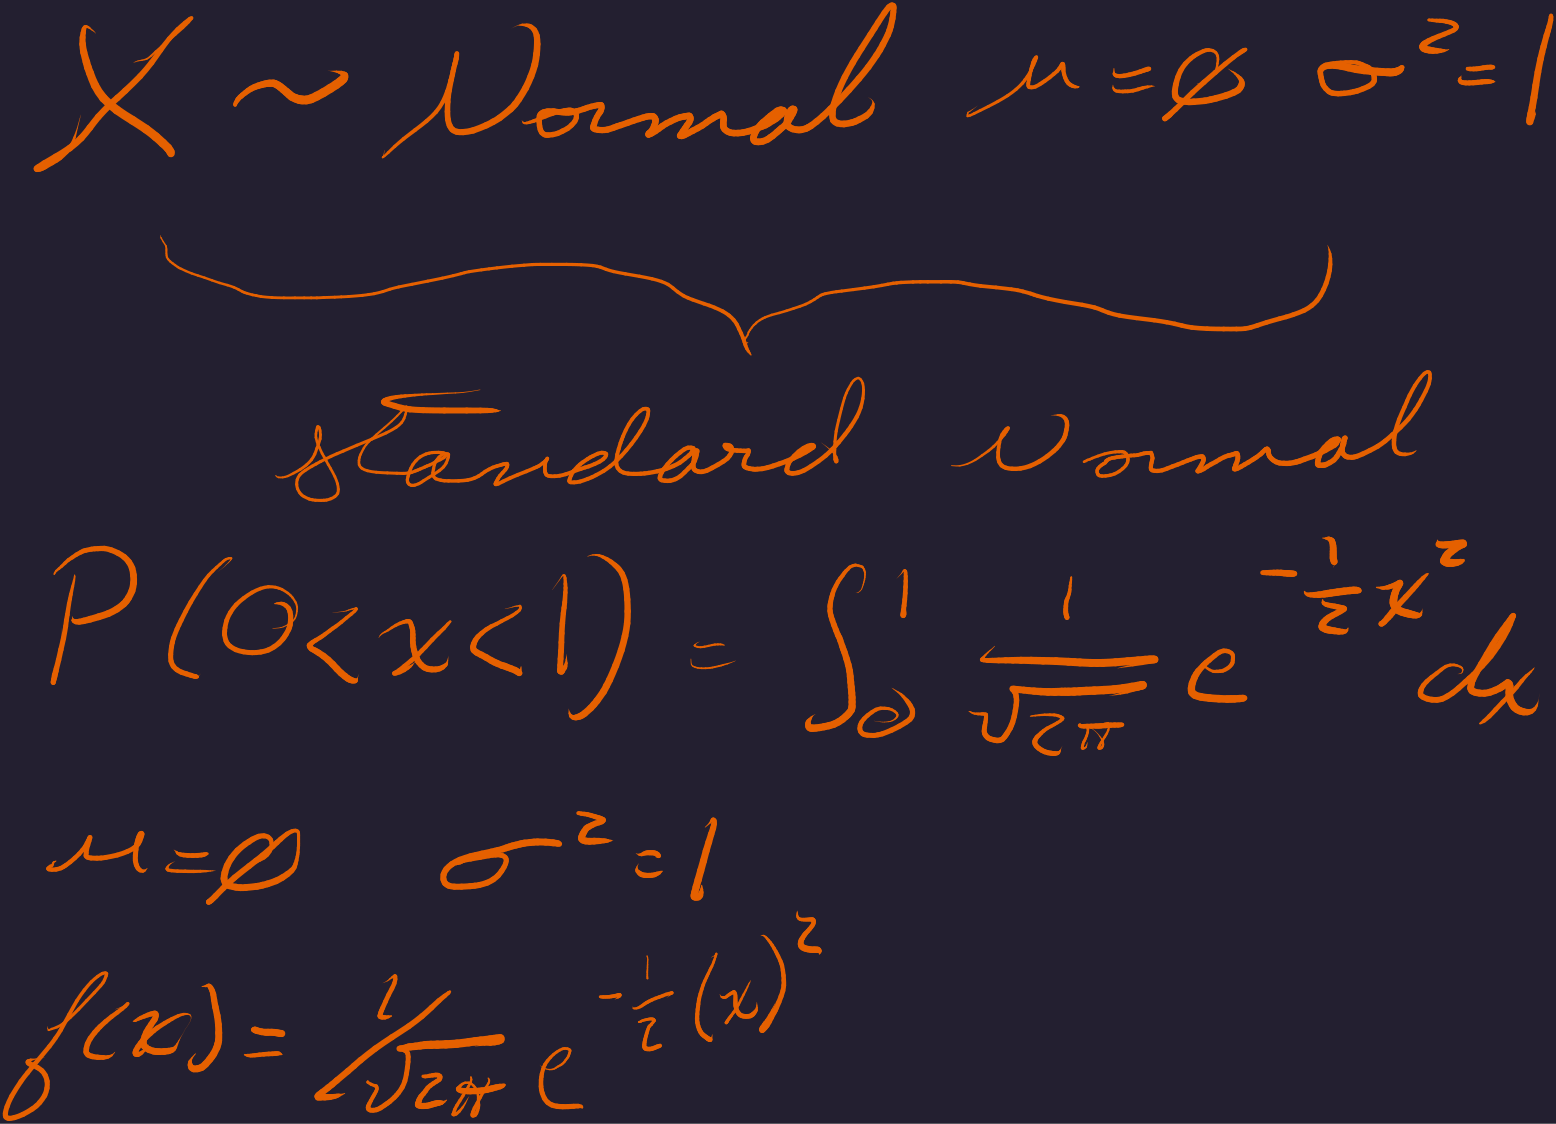 X ~ Normal μ=0 σ²=1
standard normal
P(0<x<1) = ∫₀¹ 1/√2π e^(-1/2 x²) dx
μ=0 σ²=1
f(x) = 1/√2π e^(-1/2 (x)²)